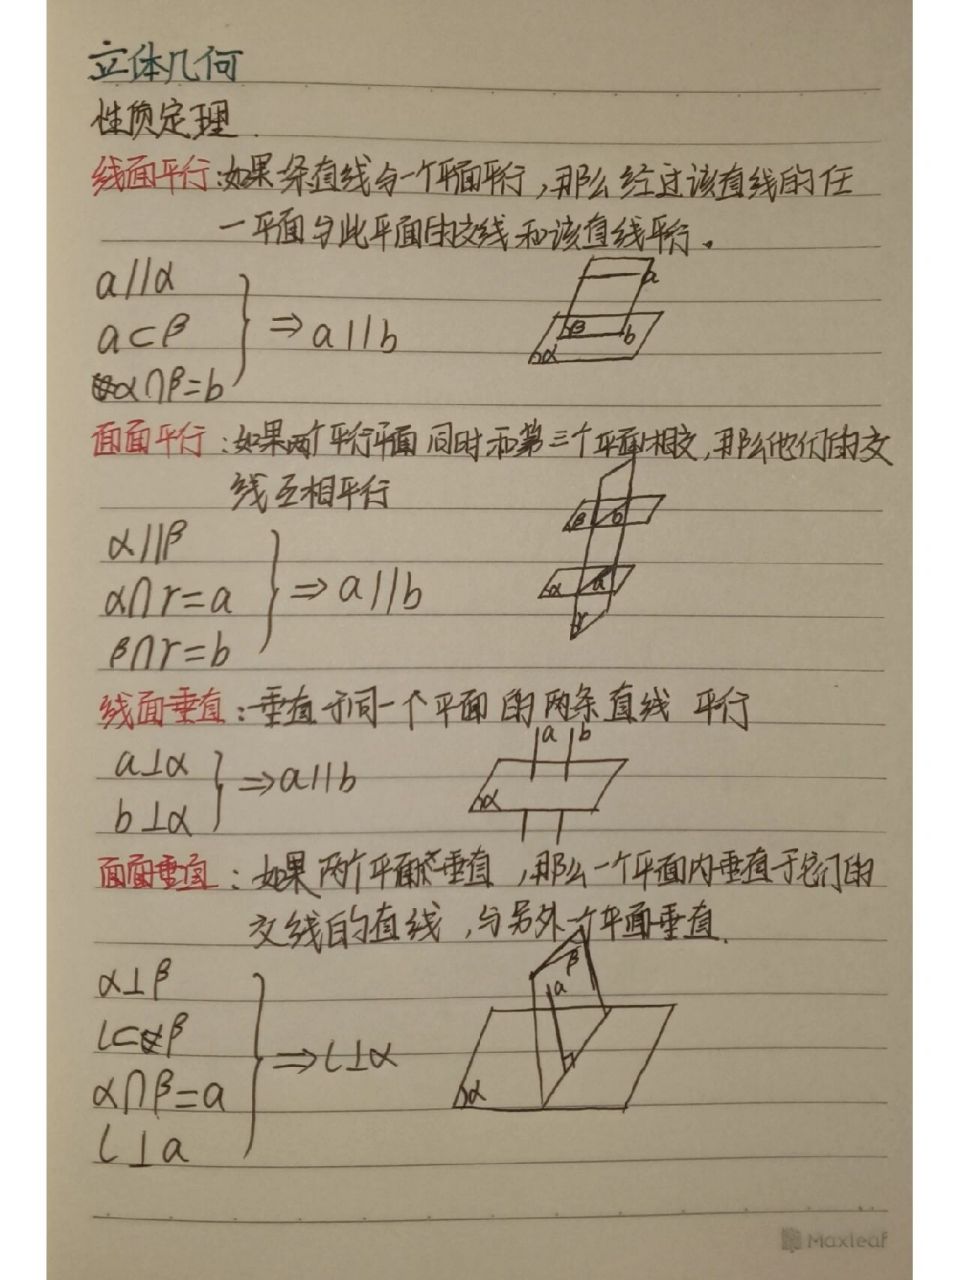 立体几何
性质定理.
线面平行:如果一条直线与一个平面平行,那么经过该直线的任
一平面与此平面的交线和该直线平行.
a//α
a⊂β ⇒ a//b
α∩β=b
a
β b
α
面面平行:如果两个平行平面同时和第三个平面相交,那么他们的交
线互相平行
β b
α//β
α∩r=a ⇒ a//b
α a
β∩r=b
r
线面垂直:垂直于同一个平面的两条直线 平行
a b
a⊥α ⇒a//b
α
b⊥α
面面垂直:如果两个平面垂直,那么一个平面内垂直于它们的
交线的直线,与另外一个平面垂直.
β
α⊥β
a
l⊂β
α∩β=a ⇒l⊥α
α
l⊥a
Maxleaf